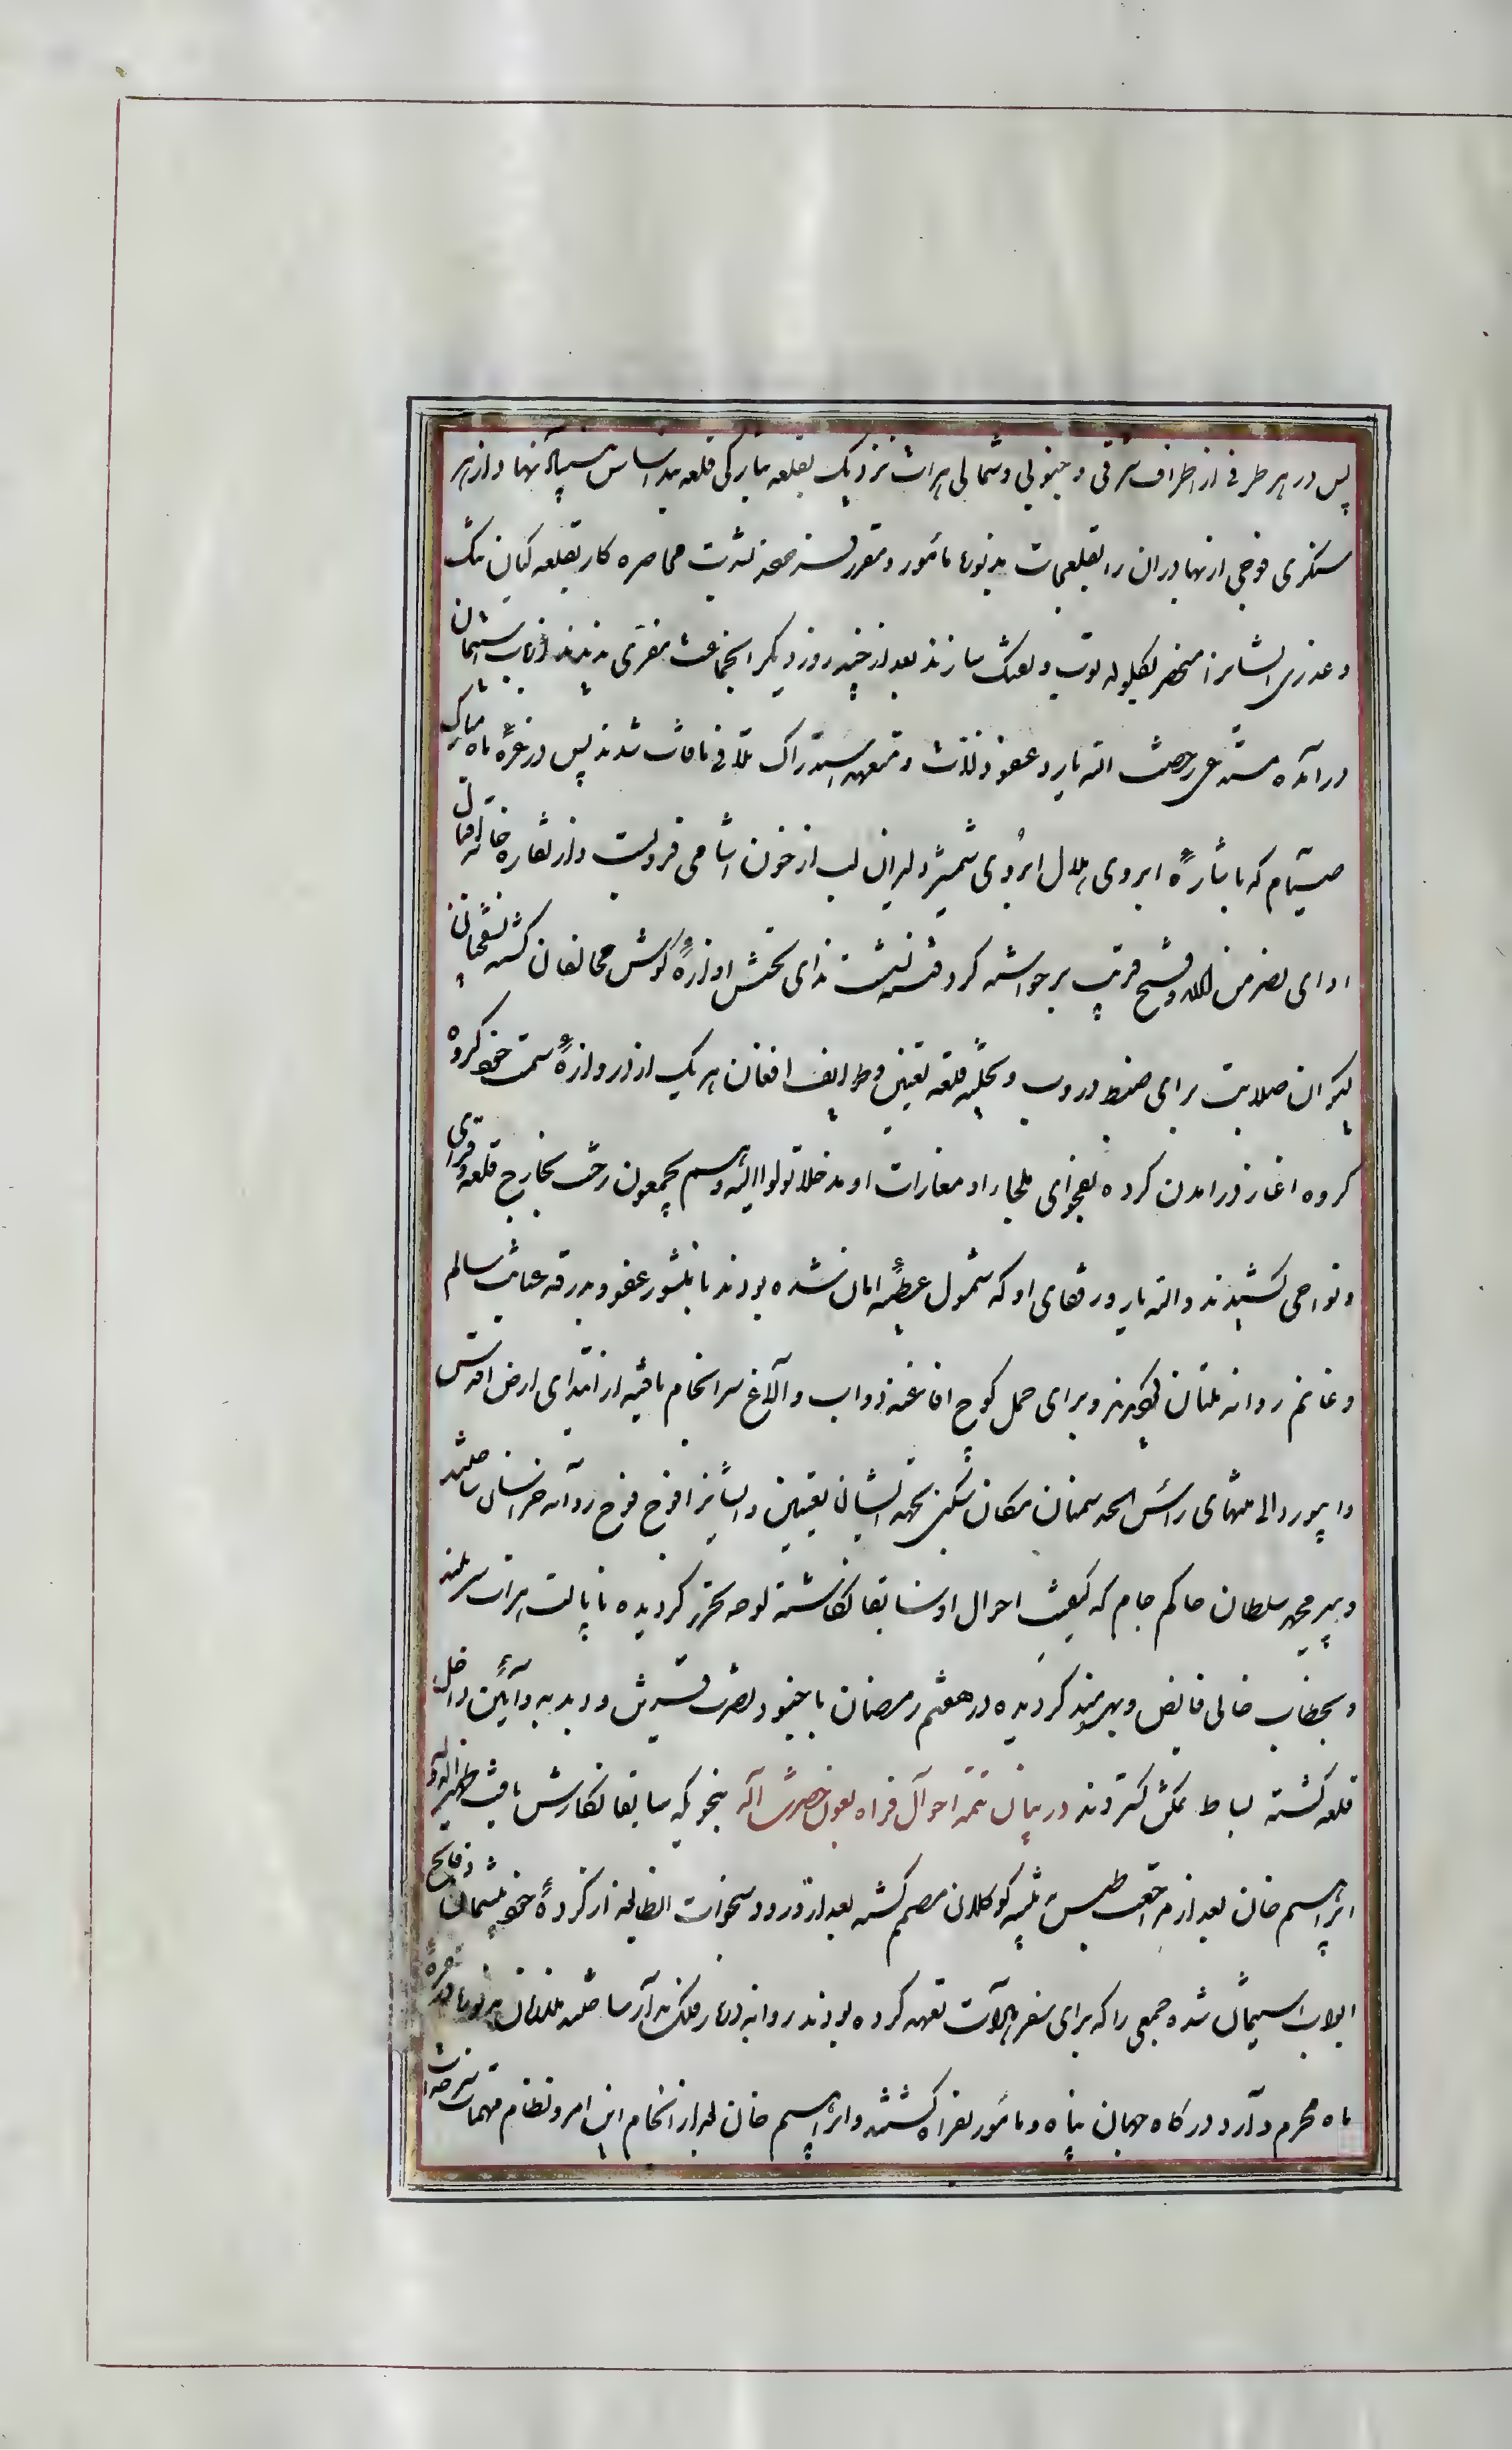 پس در هر طرفی از اطراف شرقی و جنوبی و شمالی هرات نزدیک بقلعه بنابر کی قلعه بند اساس سیبه نهاد و از هر
سنکری فوجی از بهادران را بقلعجات مأمور و مقرر محاصره کار بقلعه کیان تنک
و عذر ایشانرا منحصر بکلوله توپ و تفنک سازند بعد از چند روز دیکر انجماعت مفری ندیدند از باب استیمان
درآمده مستدعی رخصت الله یار و عفو زلات و متعهد استدراک تلافی مافات شدند پس در غره ماه مبارک
صیام که باشاره ابروی هلال ابروی شمشیر دلیران لب از خون آشامی فرو بست و از نقاره خانه اقبال
ادای نصر من الله و فتح قریب برخواسته کرد فتنه نشست ندای تحسین آویزه کوش مخالفان کشته نسقچیان
بیکران صلابت برای ضبط دروب و تخلیه قلعه تعیین و طوایف افغان هر یک از دروازه سمت خود کروه
کروه اغاز درامدن کرده بفحوای ملجاء او مغارات او مدخلا لولوا الیه و هم یجمحون رخت بخارج قلعه و قرای
و نواحی کشیدند و الله یار و رفقای او که مشمول عطیه امان شده بودند با منشور عفو و بدرقه عنایت سالم
و غانم روانه ملتان کردیدند و برای حمل کوچ افاغنه دواب و آلاغ سرانجام یافته از ابتدای ارض اقدس
و ابیورد الی منتهای راس الحد سمنان مکان سکنی بجهة ایشان تعیین و ایشانرا فوج فوج روانه خراسان ساختند
و پیر محمد سلطان حاکم جام که کیفیت احوال او سابقا نکاشته لوحه تحریر کردیده بایالت هرات سربلند
و بخطاب خانی فایض و بهره‌مند کردیده در هفتم رمضان با جنود نصرت قرین و دبدبه و آیین داخل
قلعه کشته بساط تمکن کستردند در بیان تتمه احوال فراه بعون حضرت اله بنحویکه سابقا نکارش یافت ظهیر الدوله
ابراهیم خان بعد از مراجعت طبس تنبیه کوکلان مصمم کشته بعد از ورود بنخوارت انطایفه از کرده خود پشیمان و فاتح
ابواب استیمان شده جمعی را که برای سفر هرات تعهد کرده بودند روانه دربار فلک مدار ساختند در غره
ماه محرم وارد درکاه جهان پناه و مأمور بفراه کشتند و ابراهیم خان بعد از انجام این امر و نظام مهمات سرحدات